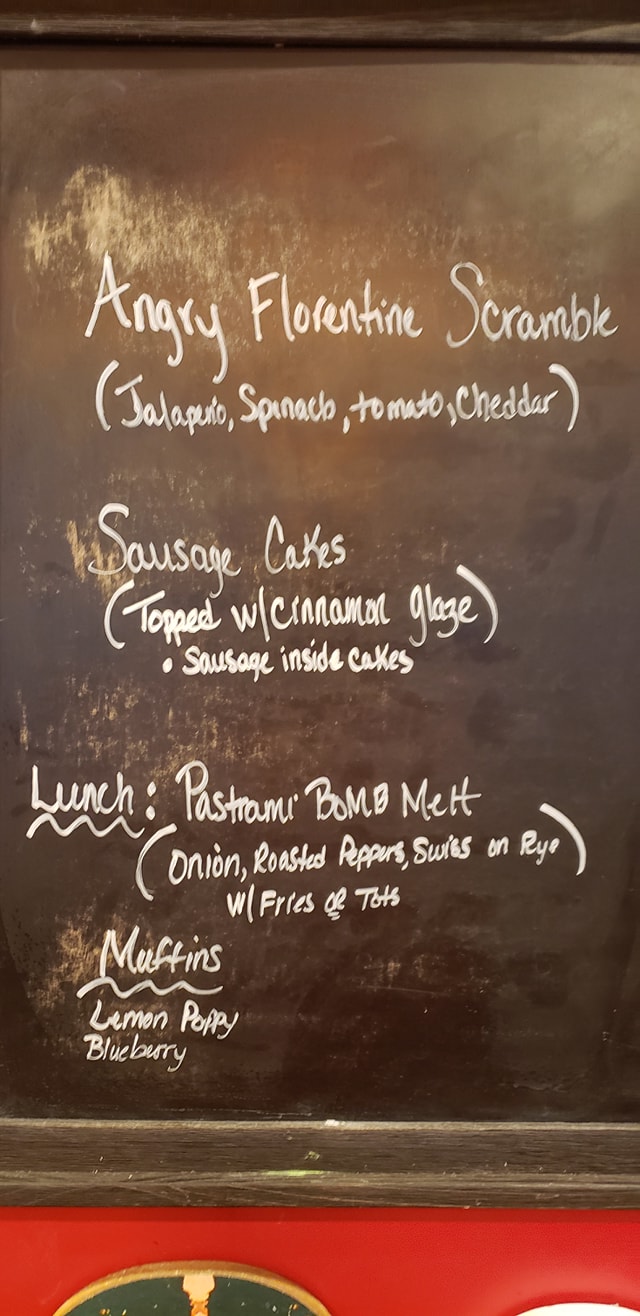 Angry Florentine Scramble
(Jalapeño, Spinach, tomato, Cheddar)
Sausage Cakes
(Topped w/Cinnamon glaze)
• Sausage inside Cakes
Lunch: Pastrami BOMB Melt
(Onion, Roasted Peppers, Swiss on Rye)
W/ Fries or Tots
Muffins
Lemon Poppy
Blueberry